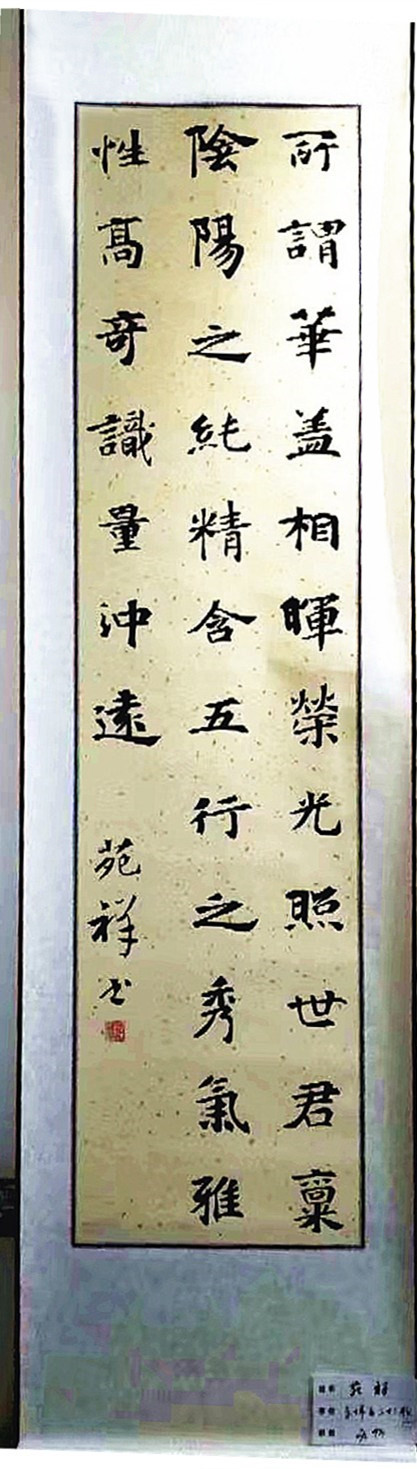 所謂華盖相暉榮光照世君稟
陰陽之純精含五行之秀氣雅
性高奇識量沖遠
苑祥书
苑祥